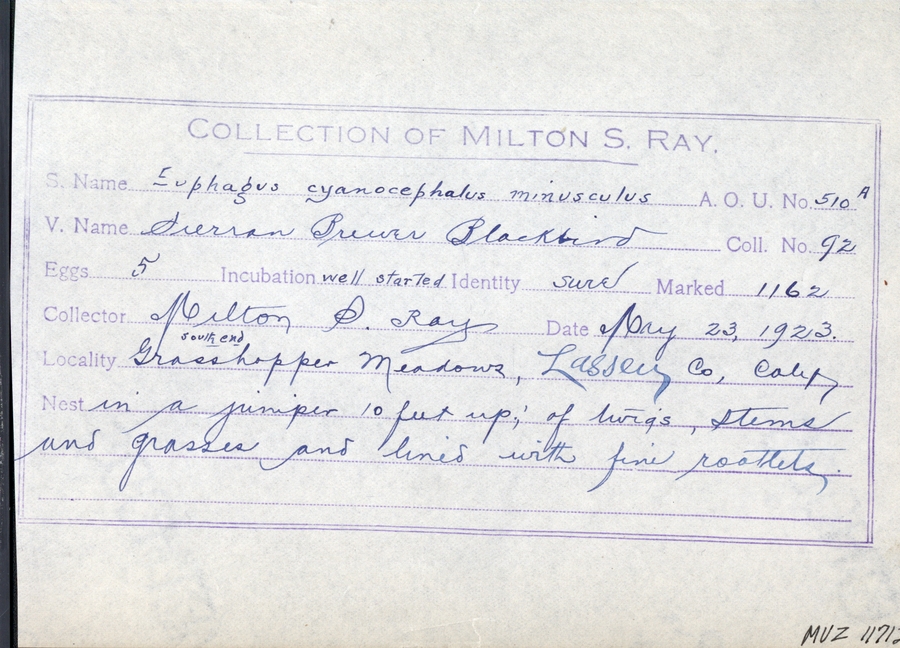 COLLECTION OF MILTON S. RAY.
S. Name Euphagus cyanocephalus minusculus A. O. U. No. 510 A
V. Name Sierran Brewer Blackbird Coll. No. 92
Eggs 5 Incubation well started Identity sure Marked 1162
Collector Milton S. Ray Date May 23, 1923.
south end
Locality Grasshopper Meadows, Lassen Co, Calif
Nest in a juniper 10 feet up; of twigs, stems
and grasses and lined with fine rootlets.
MVZ 11712